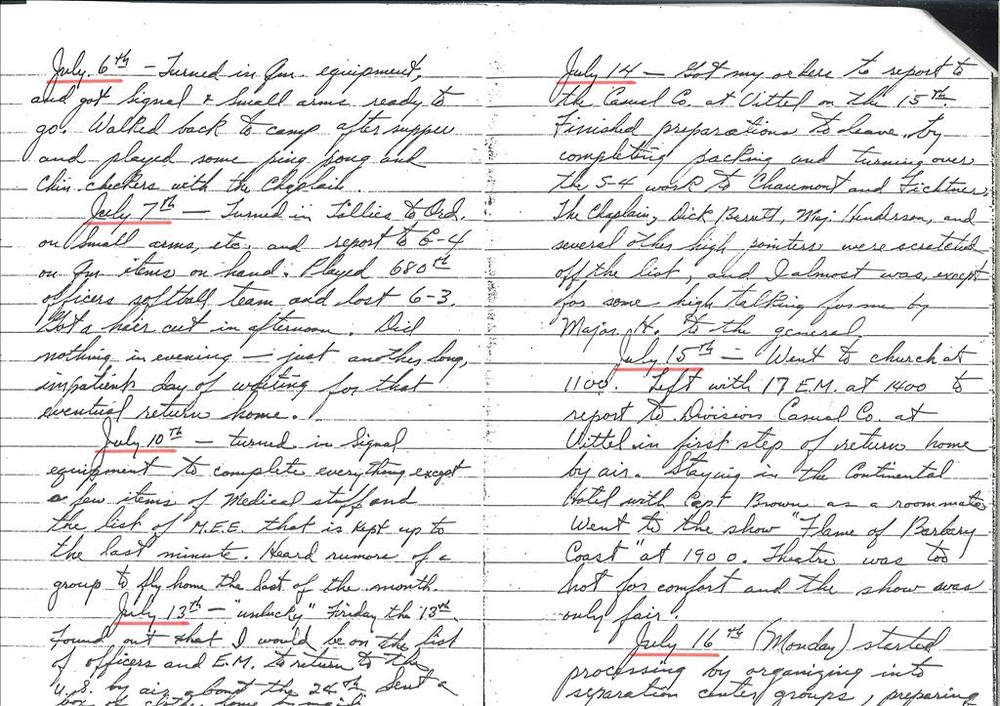 July 6th — Turned in Qm. equipment,
and got Signal & Small arms ready to
go. Walked back to camp after supper
and played some ping pong and
Chin. checkers with the Chaplain.
July 7th — Turned in Tallies to Ord.
on Small arms, etc. and report to G-4
on Qm items on hand. Played 680th
officers softball team and lost 6-3.
Got a hair cut in afternoon. Did
nothing in evening — just another long,
impatient day of waiting for that
eventual return home.
July 10th — turned in Signal
equipment to complete everything except
a few items of Medical stuff and
the list of M.E.E. that is kept up to
the last minute. Heard rumors of a
group to fly home the last of the month.
July 13th — "unlucky" Friday the 13th.
Found out that I would be on the list
of officers and E.M. to return to the
U.S. by air about the 24th. Sent a
box of clothes home by mail.
July 14 — Got my orders to report to
the Casual Co. at Vittel on the 15th.
Finished preparations to leave, by
completing packing and turning over
the S-4 work to Chaumont and Fichtner.
The Chaplain, Dick Berrett, Maj. Henderson, and
several other high pointers were scratched
off the list, and I almost was, except
for some high talking for me by
Major H. to the general.
July 15th — Went to church at
1100. Left with 17 E.M. at 1400 to
report to Division Casual Co. at
Vittel in first step of return home
by air. Staying in the Continental
Hotel with Capt Brown as a roommate
Went to the show "Flame of Barbary
Coast" at 1900. Theatre was too
hot for comfort and the show was
only fair.
July 16th (Monday) started
processing by organizing into
separation center groups, preparing